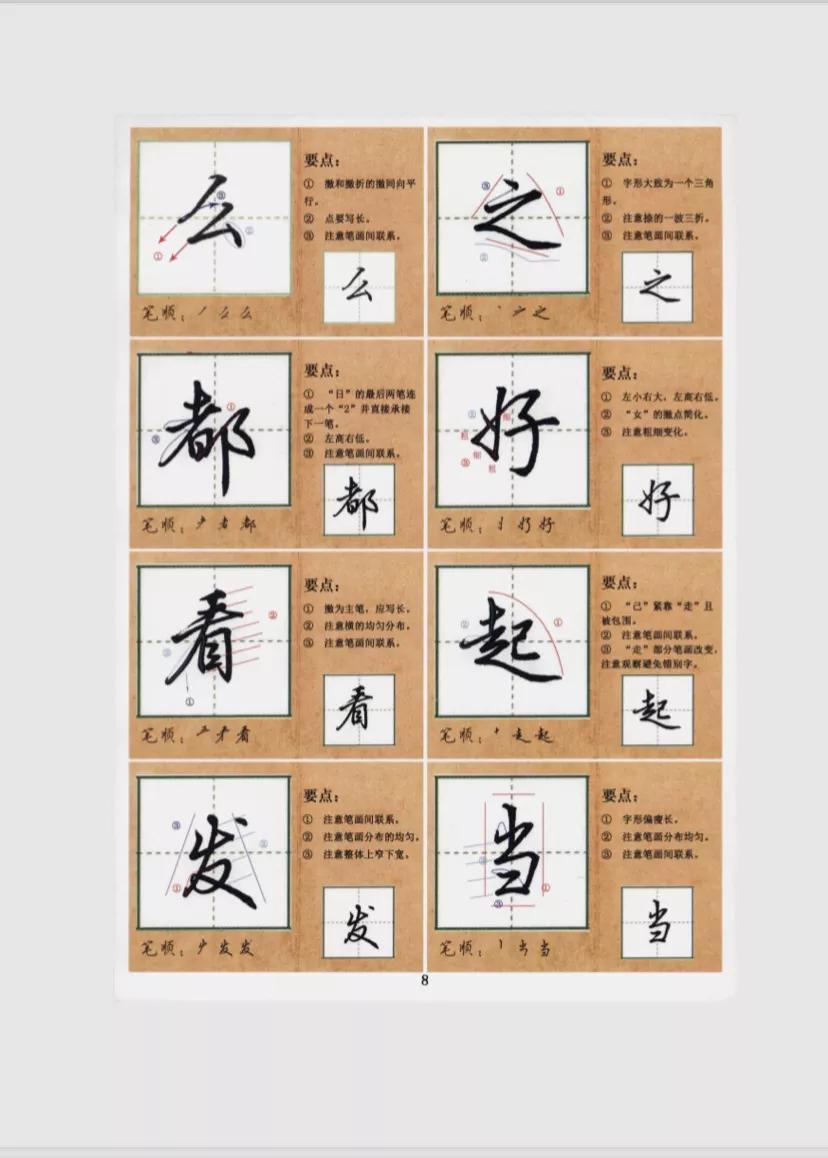 么
要点：
① 撇和撇折的撇同向平
行。
② 点要写长。
③ 注意笔画间联系。
① ② ③
么
笔顺：丿 么 么
之
要点：
① 字形大致为一个三角
形。
② 注意捺的一波三折。
③ 注意笔画间联系。
① ② ③
之
笔顺：丶 之
都
要点：
① “日”的最后两笔连
成一个“2”并直接承接
下一笔。
② 左高右低。
③ 注意笔画间联系。
① ③
都
笔顺：耂 者 都
好
要点：
① 左小右大，左高右低。
② “女”的撇点简化。
③ 注意粗细变化。
① ③ 粗 细 粗
好
笔顺：好 好
看
要点：
① 撇为主笔，应写长。
② 注意横的均匀分布。
③ 注意笔画间联系。
① ② ③
看
笔顺：看
起
要点：
① “己”紧靠“走”且
被包围。
② 注意笔画间联系。
③ “走”部分笔画改变，
注意观察避免错别字。
① ②
起
笔顺：十 走 起
发
要点：
① 注意笔画间联系。
② 注意笔画分布的均匀。
③ 注意整体上窄下宽。
① ② ③
发
笔顺：发 发
当
要点：
① 字形偏瘦长。
② 注意笔画分布均匀。
③ 注意笔画间联系。
① ② ③
当
笔顺：丨 当 当
8